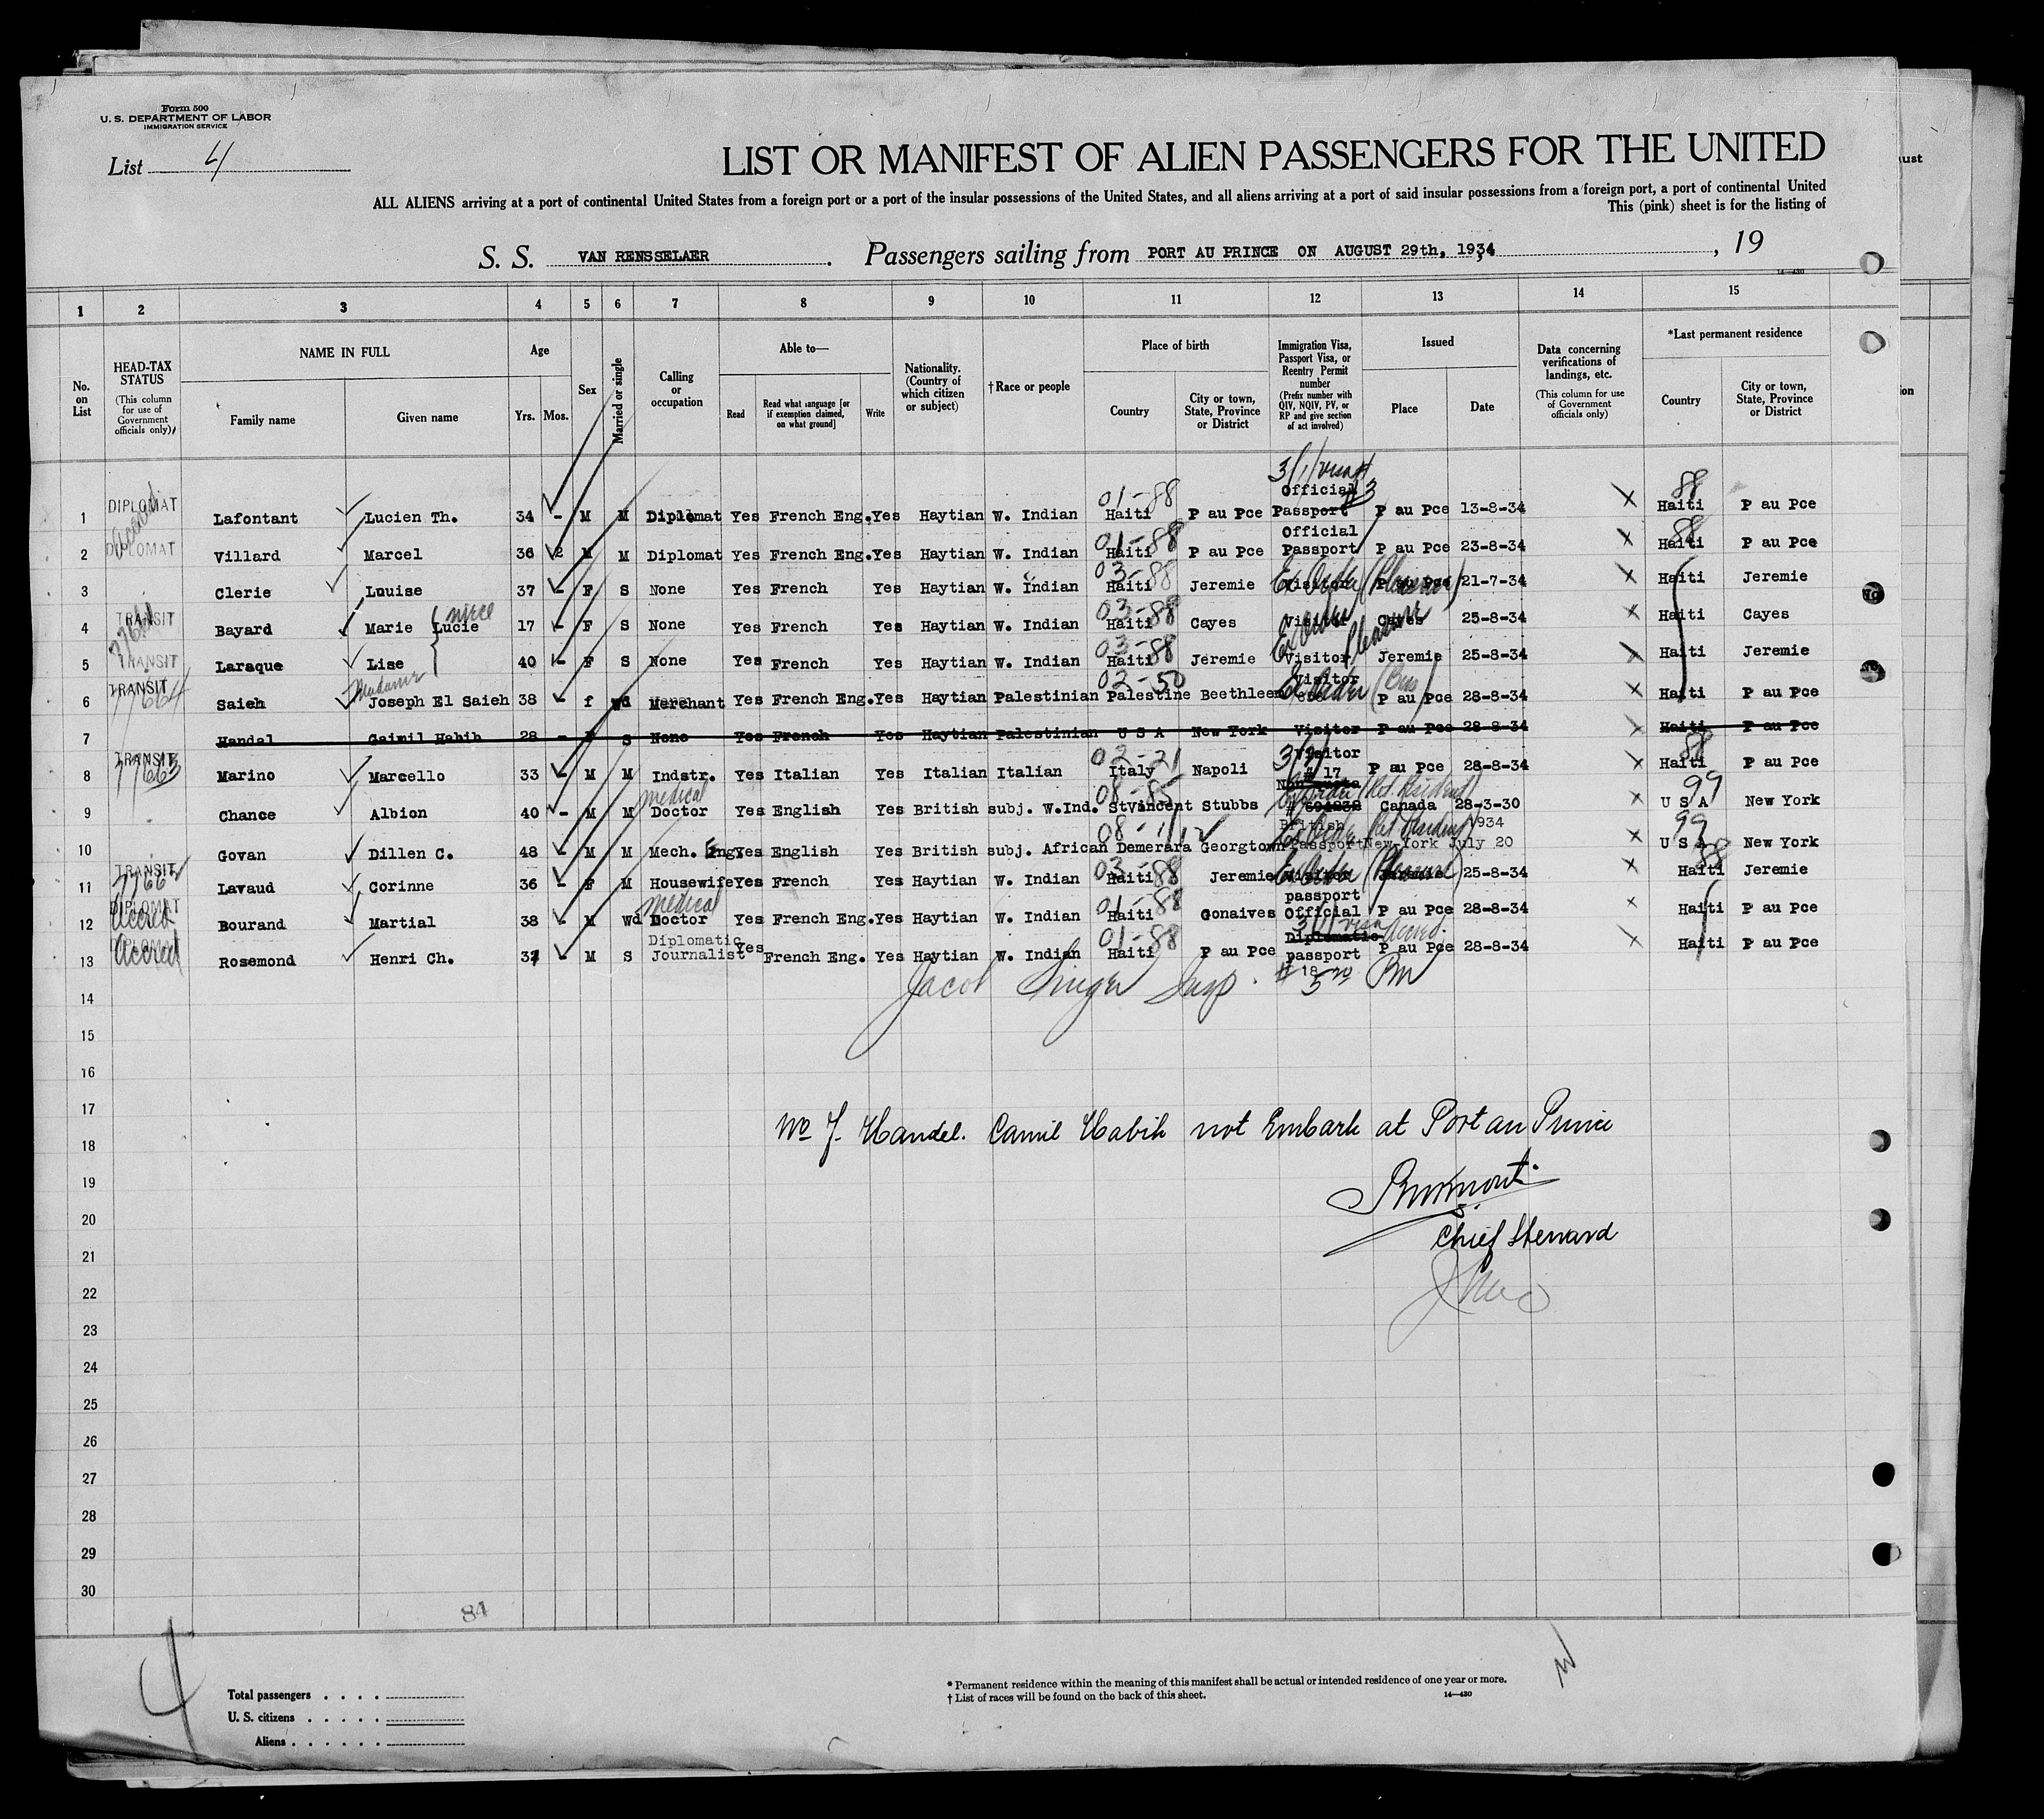 Form 500
U. S. DEPARTMENT OF LABOR
IMMIGRATION SERVICE
List 4
LIST OR MANIFEST OF ALIEN PASSENGERS FOR THE UNITED
ALL ALIENS arriving at a port of continental United States from a foreign port or a port of the insular possessions of the United States, and all aliens arriving at a port of said insular possessions from a foreign port, a port of continental United
This (pink) sheet is for the listing of
S. S. VAN RENSSELAER. Passengers sailing from PORT AU PRINCE ON AUGUST 29th, 1934, 19
14—430
1 2 3 4 5 6 7 8 9 10 11 12 13 14 15
No. on List
HEAD-TAX STATUS (This column for use of Government officials only)
NAME IN FULL
Family name Given name
Age
Yrs. Mos.
Sex
Married or single
Calling or occupation
Able to—
Read Read what language [or if exemption claimed, on what ground] Write
Nationality. (Country of which citizen or subject)
†Race or people
Place of birth
Country City or town, State, Province or District
Immigration Visa, Passport Visa, or Reentry Permit number (Prefix number with QIV, NQIV, PV, or RP and give section of act involved)
Issued
Place Date
Data concerning verifications of landings, etc. (This column for use of Government officials only)
*Last permanent residence
Country City or town, State, Province or District
1 DIPLOMAT Lafontant Lucien Th. 34 - M M Diplomat Yes French Eng. Yes Haytian W. Indian 01-88 Haiti P au Pce Official Passport P au Pce 13-8-34 88 Haiti P au Pce
2 DIPLOMAT Villard Marcel 36 2 M M Diplomat Yes French Eng. Yes Haytian W. Indian 01-88 Haiti P au Pce Official Passport P au Pce 23-8-34 88 Haiti P au Pce
3 Clerie Louise 37 - F S None Yes French Yes Haytian W. Indian 03-88 Haiti Jeremie Visitor P au Pce 21-7-34 Haiti Jeremie
4 TRANSIT Bayard Marie Lucie niece 17 - F S None Yes French Yes Haytian W. Indian 03-88 Haiti Cayes Visitor Pleasure Cayes 25-8-34 Haiti Cayes
5 TRANSIT Laraque Lise 40 - F S None Yes French Yes Haytian W. Indian 03-88 Haiti Jeremie Visitor Jeremie 25-8-34 Haiti Jeremie
6 TRANSIT 77664 Saieh Madame Joseph El Saieh 38 - f wd Merchant Yes French Eng. Yes Haytian Palestinian 02-50 Palestine Beethleem Visitor P au Pce 28-8-34 Haiti P au Pce
7 Handal Gaimil Habib 28 - F S None Yes French Yes Haytian Palestinian U S A New York Visitor P au Pce 28-8-34 Haiti P au Pce
8 TRANSIT 77663 Marino Marcello 33 - M M Indstr. Yes Italian Yes Italian Italian 02-21 Italy Napoli Visitor # 17 P au Pce 28-8-34 88 Haiti P au Pce
9 Chance Albion 40 - M M medical Doctor Yes English Yes British subj. W.Ind. 08-85 StVincent Stubbs Canada 28-3-30 99 U S A New York
10 Govan Dillen C. 48 - M M Mech. Eng. Yes English Yes British subj. African Demerara Georgetown British Passport New York July 20 1934 99 U S A New York
11 TRANSIT Lavaud Corinne 36 - F M Housewife Yes French Yes Haytian W. Indian 03-88 Haiti Jeremie 25-8-34 88 Haiti Jeremie
12 DIPLOMAT Accred Bourand Martial 38 - M Wd medical Doctor Yes French Eng. Yes Haytian W. Indian 01-88 Haiti Gonaives passport Official P au Pce 28-8-34 Haiti P au Pce
13 DIPLOMAT Accred Rosemond Henri Ch. 37 - M S Diplomatic Journalist Yes French Eng. Yes Haytian W. Indian 01-88 Haiti P au Pce Diplomatic passport # 18 P au Pce 28-8-34 Haiti P au Pce
14 Jacob Singer Insp.
15
16
17
No 7. Handel. Camil Habib not Embark at Port au Prince
18
19
20
Chief Steward
21
22
23
24
25
26
27
28
29
30
84
4
Total passengers
U. S. citizens
Aliens
* Permanent residence within the meaning of this manifest shall be actual or intended residence of one year or more.
† List of races will be found on the back of this sheet.
14—430